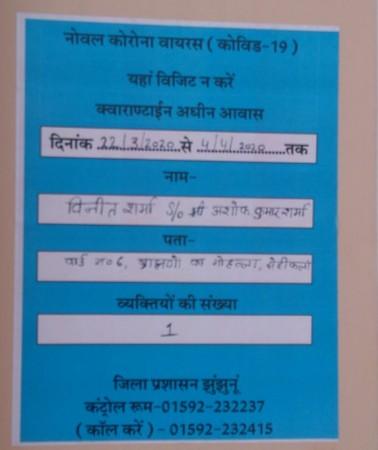 नोवल कोरोना वायरस ( कोविड-19 )
यहां विजिट न करें
क्वाराण्टाईन अधीन आवास
दिनांक 22/3/2020 से 4/4/2020 तक
नाम-
विनीत शर्मा S/o श्री अशोक कुमार शर्मा
पता-
वार्ड न० 6, ब्राह्मणो का मोहल्ला,
व्यक्तियों की संख्या
1
जिला प्रशासन झुंझुनूं
कंट्रोल रूम-01592-232237
( कॉल करें ) - 01592-232415